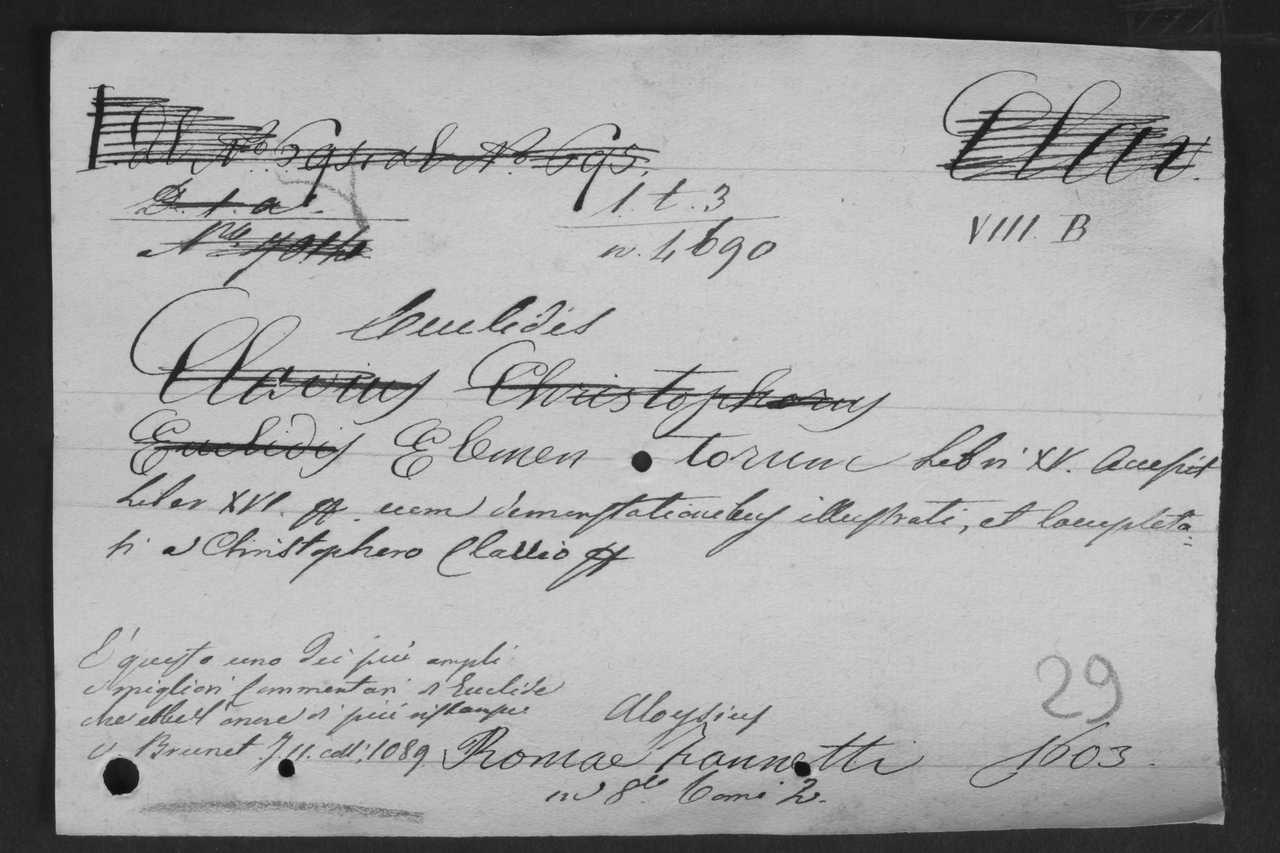 Al No 694 al No 695. Clav.
D. t. a. 1. t. 3 VIII. B
Nro n. 4690
Euclidis
Clavius Christophorus
Euclidis Elementorum Libri XV. Accessit
Liber XVI. cum demonstrationibus illustrati, et locupleta=
ti a Christophero Clavio
È questo uno dei più ampli
e migliori Commentari d'Euclide 29
che ebbe l'onore di più ristampe Aloysius
v. Brunet T. II. coll. 1089 Romae Zannetti 1603.
in 8.º Tomi 2.